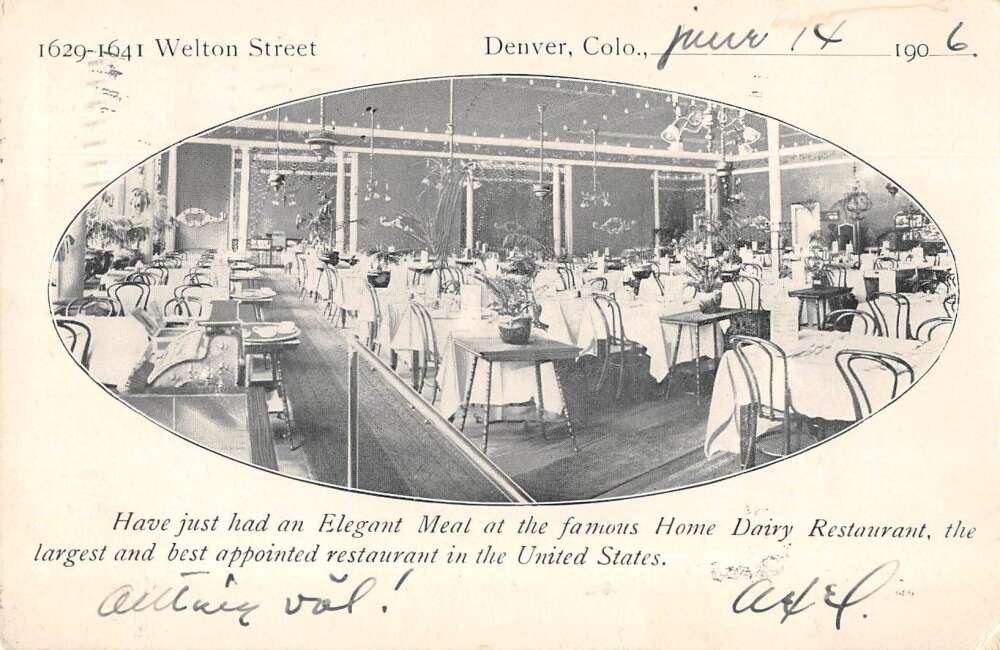 1629-1641 Welton Street
Denver, Colo., June 14 1906.
Have just had an Elegant Meal at the famous Home Dairy Restaurant, the
largest and best appointed restaurant in the United States.